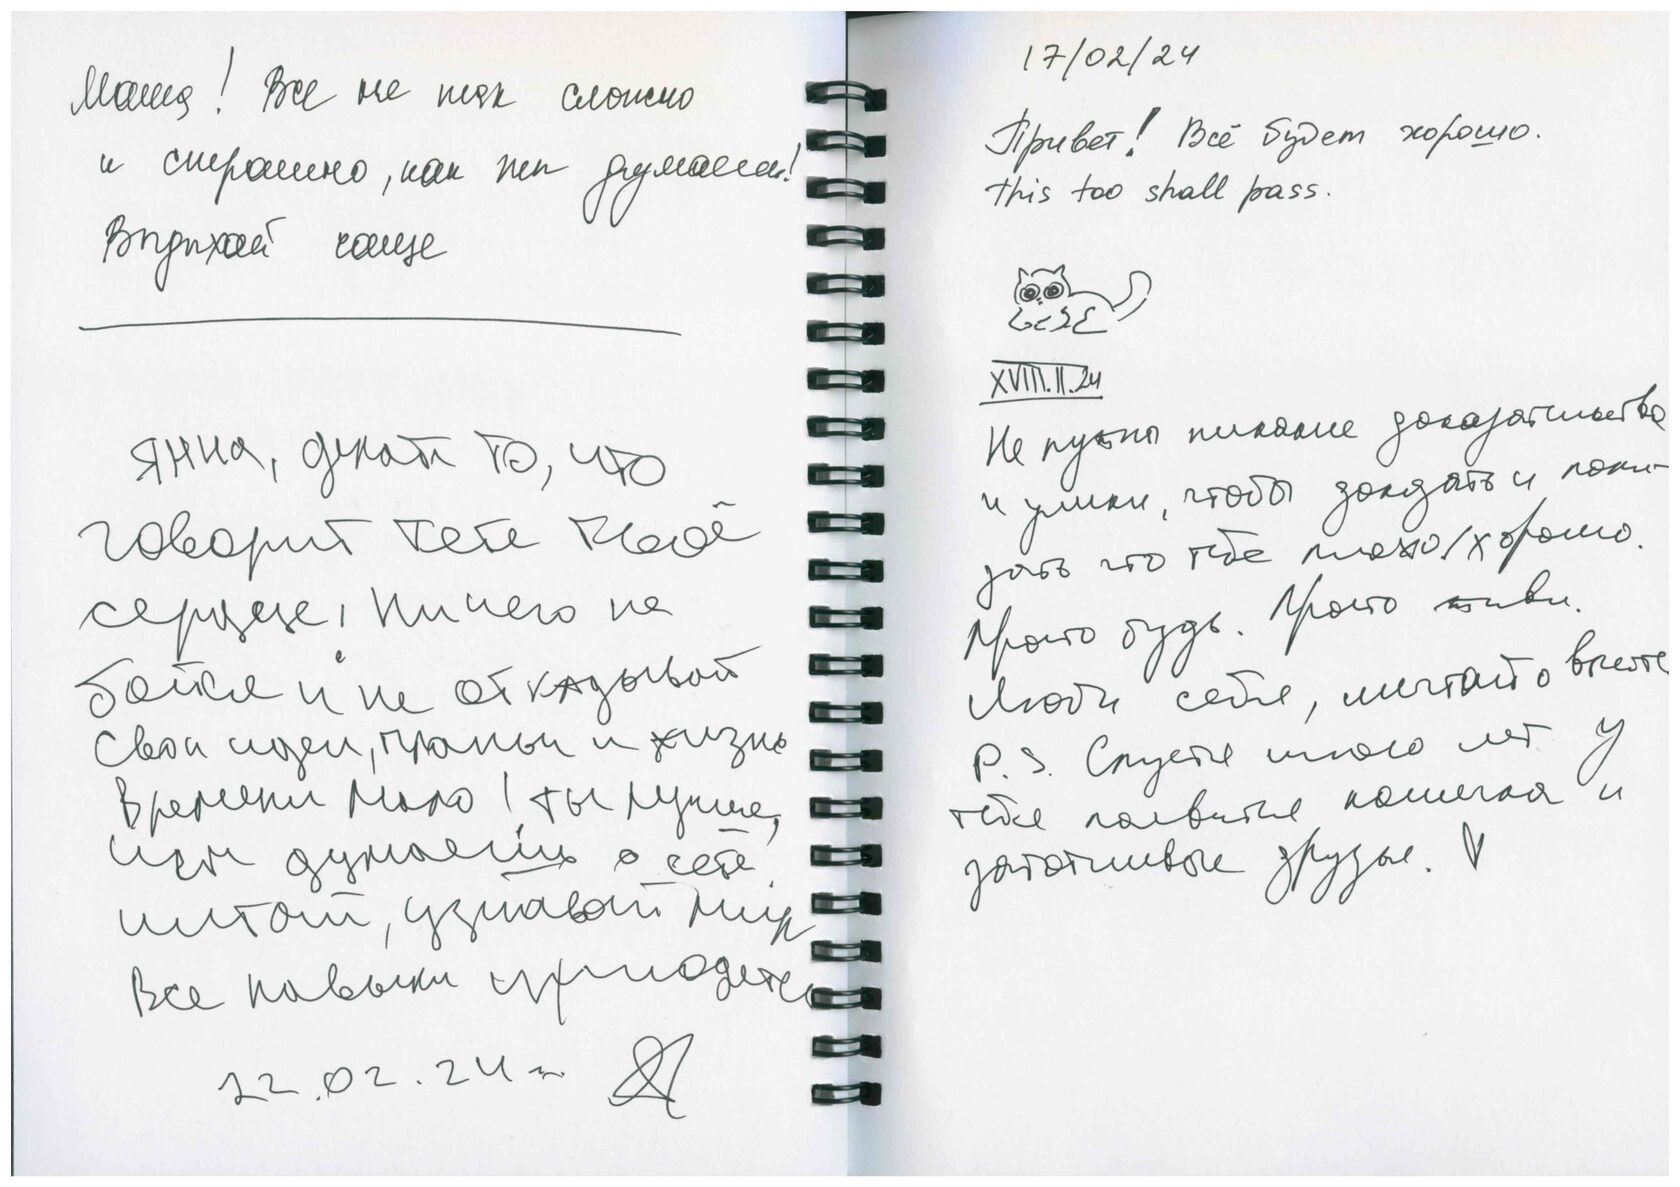 Маша! Все не так сложно
и страшно, как ты думаешь!
Выдыхай чаще
Янна, делай то, что
говорит тебе твоё
сердце! Ничего не
бойся и не откладывай
свои идеи, планы и жизнь
Времени мало! Ты лучше,
чем думаешь о себе.
читай, узнавай мир
Все навыки пригодятся
22.02.24 г.
17/02/24
Привет! Всё будет хорошо.
this too shall pass.
XVIII.II.24
Не нужны никакие доказательства
и улики, чтобы доказать и пока-
зать что тебе плохо/хорошо.
Просто будь. Просто живи.
Люби себя, мечтай о
P.S. Спустя много лет у
тебя появится кошечка и
заботливые друзья.